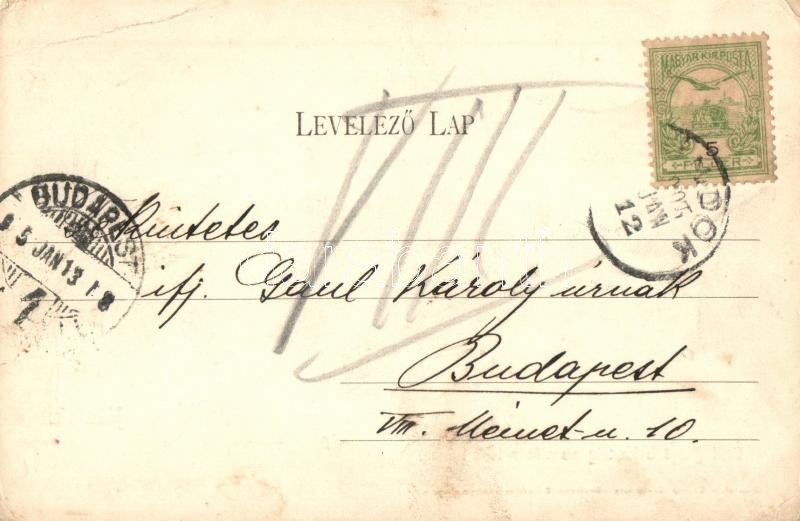 MAGYAR KIR. POSTA
5
FILLÉR
LEVELEZŐ LAP
VIII
DOK
JAN
12
BUDAPEST
5 JAN 13
Tekintetes
ifj. Gaul Károly úrnak
Budapest
VIII. Német-u. 10.